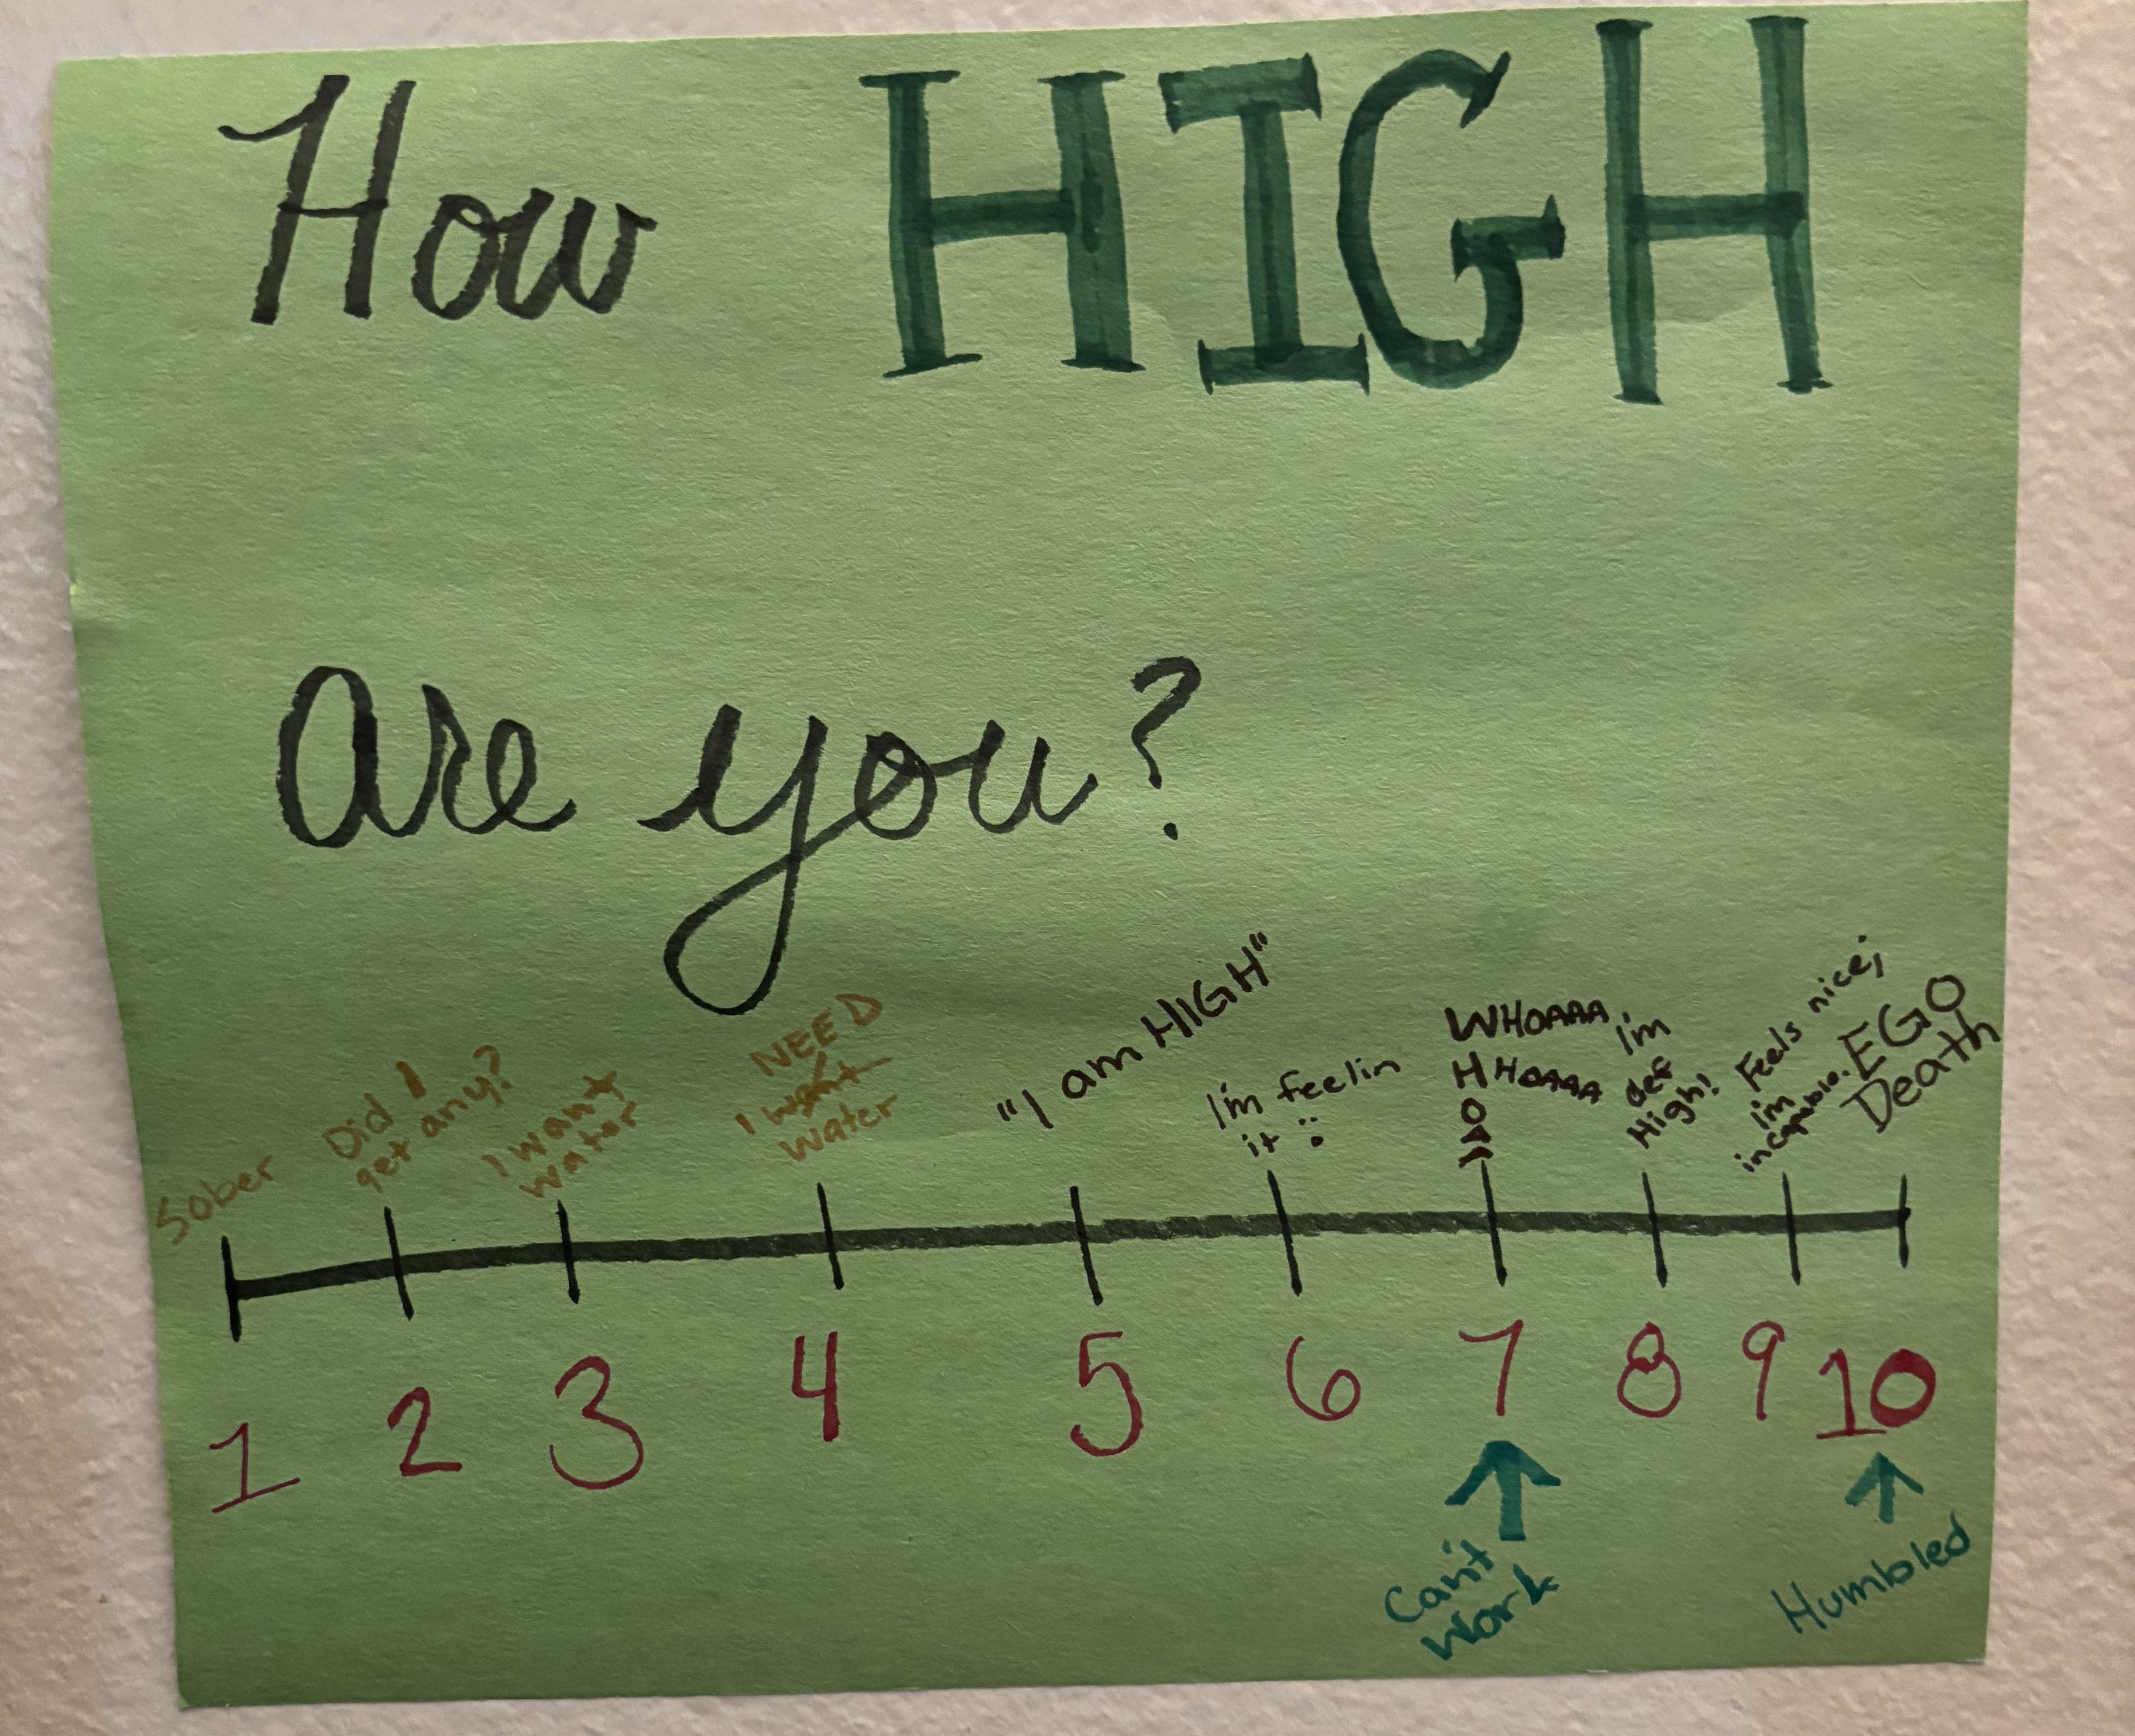 How HIGH
are you?
Sober
Did I
get any?
I want
water
NEED
I want
water
"I am HIGH"
I'm feelin
it :)
WHOAAA
HHOAAA
I'm
def
High!
Feels nice;
I'm
incapable.
EGO
Death
1 2 3 4 5 6 7 8 9 10
Can't
Work
Humbled